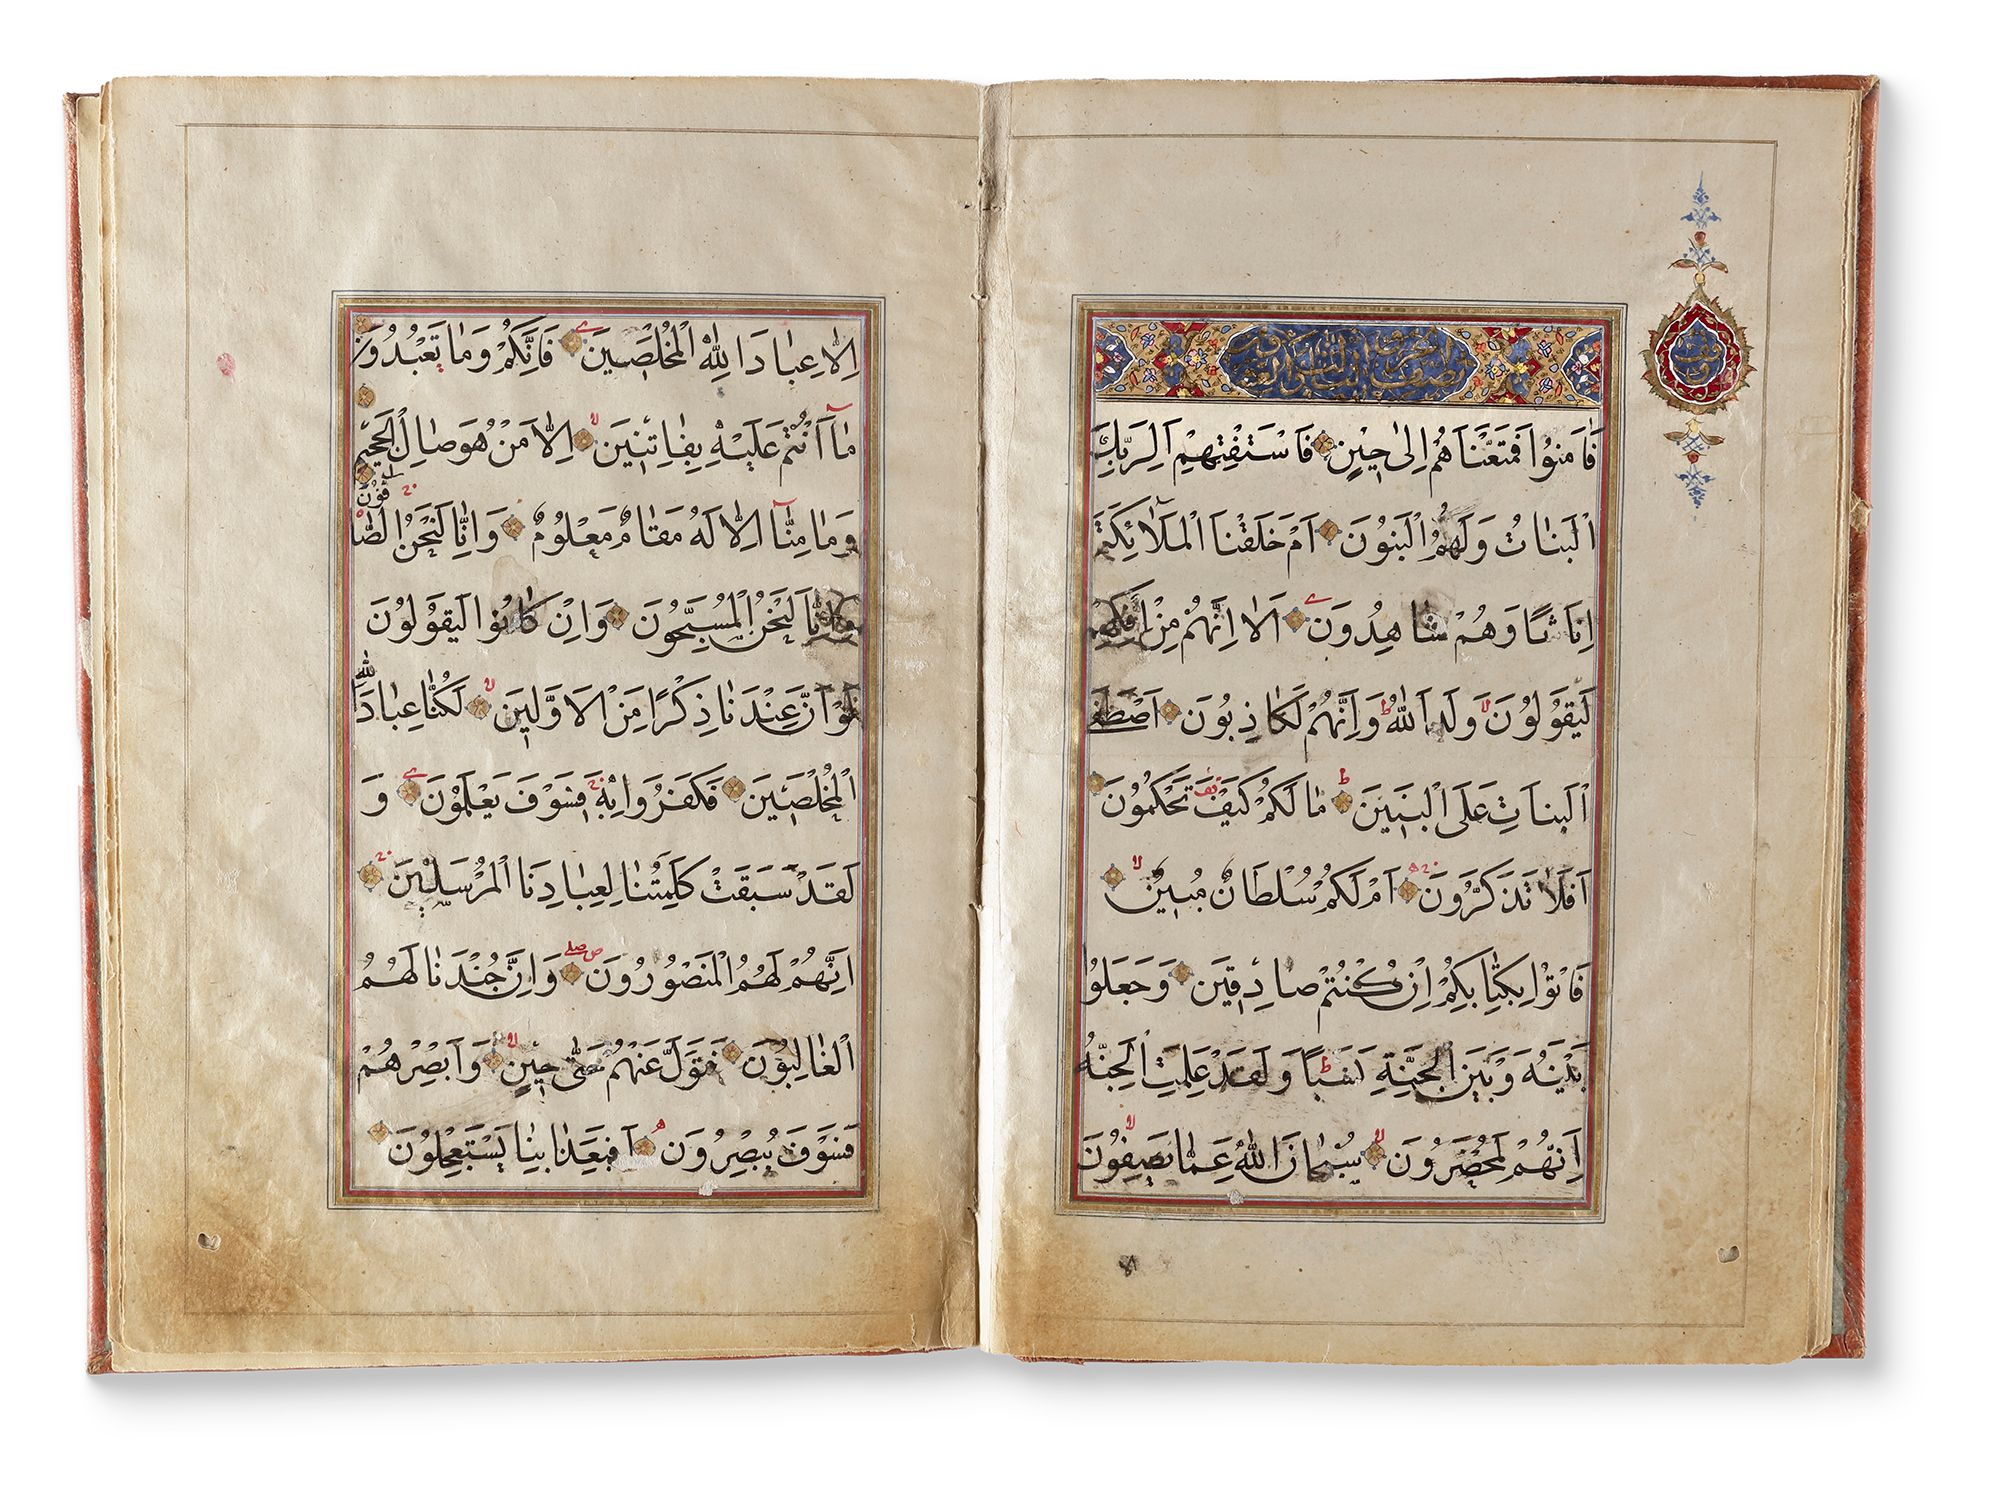 وقف
فَاٰمَنُوا فَمَتَّعْنَاهُمْ اِلٰى حِيْنٍ فَاسْتَفْتِهِمْ اَلِرَبِّكَ
الْبَنَاتُ وَلَهُمُ الْبَنُوْنَ اَمْ خَلَقْنَا الْمَلٰٓائِكَةَ
اِنَاثًا وَهُمْ شَاهِدُوْنَ اَلَا اِنَّهُمْ مِنْ اِفْكِهِمْ
لَيَقُوْلُوْنَ وَلَدَ اللّٰهُ وَاِنَّهُمْ لَكَاذِبُوْنَ اَصْطَفَى
الْبَنَاتِ عَلَى الْبَنِيْنَ مَا لَكُمْ كَيْفَ تَحْكُمُوْنَ
اَفَلَا تَذَكَّرُوْنَ اَمْ لَكُمْ سُلْطَانٌ مُبِيْنٌ
فَأْتُوا بِكِتَابِكُمْ اِنْ كُنْتُمْ صَادِقِيْنَ وَجَعَلُوا
بَيْنَهُ وَبَيْنَ الْجِنَّةِ نَسَبًا وَلَقَدْ عَلِمَتِ الْجِنَّةُ
اِنَّهُمْ لَمُحْضَرُوْنَ سُبْحَانَ اللّٰهِ عَمَّا يَصِفُوْنَ
اِلَّا عِبَادَ اللّٰهِ الْمُخْلَصِيْنَ فَاِنَّكُمْ وَمَا تَعْبُدُوْنَ
مَآ اَنْتُمْ عَلَيْهِ بِفَاتِنِيْنَ اِلَّا مَنْ هُوَ صَالِ الْجَحِيْمِ
وَمَا مِنَّآ اِلَّا لَهُ مَقَامٌ مَعْلُوْمٌ وَاِنَّا لَنَحْنُ الصَّافُّوْنَ
وَاِنَّا لَنَحْنُ الْمُسَبِّحُوْنَ وَاِنْ كَانُوْا لَيَقُوْلُوْنَ
لَوْ اَنَّ عِنْدَنَا ذِكْرًا مِنَ الْاَوَّلِيْنَ لَكُنَّا عِبَادَ اللّٰهِ
الْمُخْلَصِيْنَ فَكَفَرُوا بِهٖ فَسَوْفَ يَعْلَمُوْنَ وَ
لَقَدْ سَبَقَتْ كَلِمَتُنَا لِعِبَادِنَا الْمُرْسَلِيْنَ
اِنَّهُمْ لَهُمُ الْمَنْصُوْرُوْنَ وَاِنَّ جُنْدَنَا لَهُمُ
الْغَالِبُوْنَ فَتَوَلَّ عَنْهُمْ حَتّٰى حِيْنٍ وَاَبْصِرْهُمْ
فَسَوْفَ يُبْصِرُوْنَ اَفَبِعَذَابِنَا يَسْتَعْجِلُوْنَ